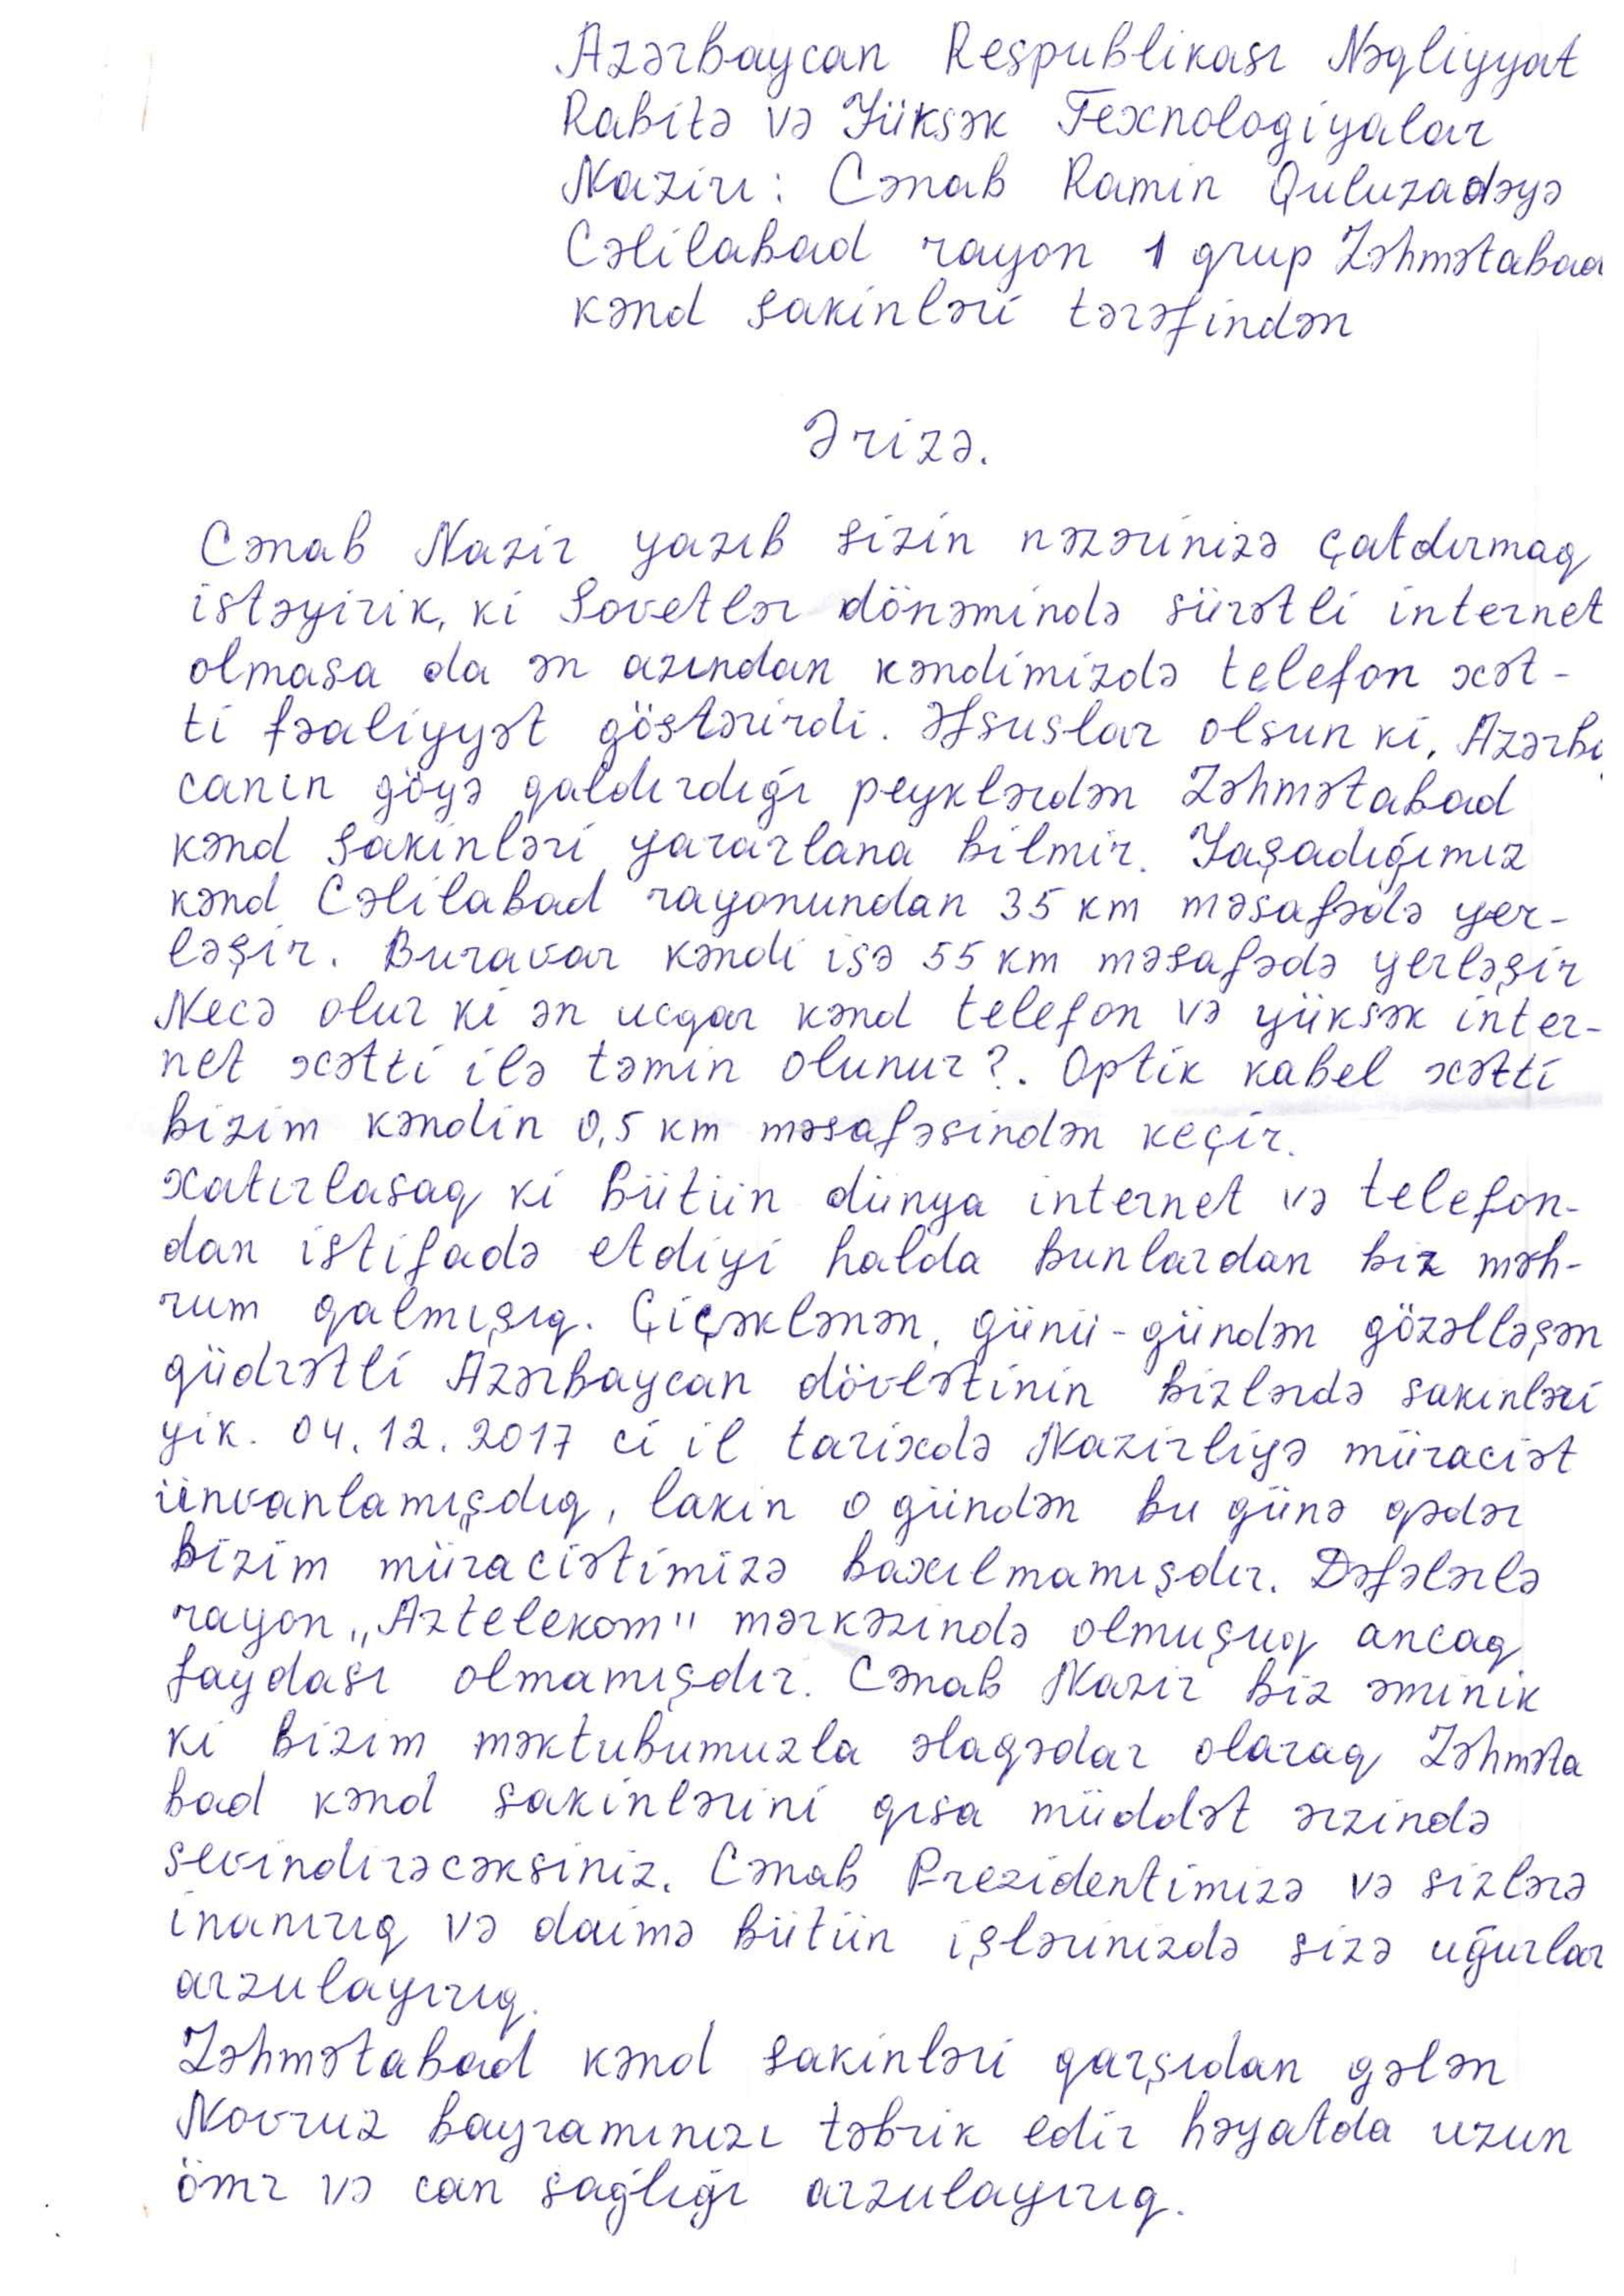 Azərbaycan Respublikası Nəqliyyat
Rabitə və Yüksək Texnologiyalar
Naziri: Cənab Ramin Quluzadəyə
Cəlilabad rayon 1 grup Zəhmətabad
kənd sakinləri tərəfindən
Ərizə.
Cənab Nazir yazıb sizin nəzərinizə çatdırmaq
istəyirik, ki Sovetlər dönəmində sürətli internet
olmasa da ən azından kəndimizdə telefon xət-
ti fəaliyyət göstərirdi. Əfsuslar olsun ki, Azərba
canın göyə qaldırdığı peyklərdən Zəhmətabad
kənd sakinləri yararlana bilmir. Yaşadığımız
kənd Cəlilabad rayonundan 35 km məsafədə yer-
ləşir. Buravar kəndi isə 55 km məsafədə yerləşir
Necə olur ki ən ucqar kənd telefon və yüksək inter-
net xətti ilə təmin olunur?. Optik kabel xətti
bizim kəndin 0,5 km məsafəsindən keçir.
Xatırlasaq ki bütün dünya internet və telefon-
dan istifadə etdiyi halda bunlardan biz məh-
rum qalmışıq. Çiçəklənən, günü-gündən gözəlləşən
qüdrətli Azərbaycan dövlətinin bizlərdə sakinləri
yik. 04.12.2017 ci il tarixdə Nazirliyə müraciət
ünvanlamışdıq, lakin o gündən bu günə qədər
bizim müraciətimizə baxılmamışdır. Dəfələrlə
rayon „Aztelekom" mərkəzində olmuşuq ancaq
faydası olmamışdır. Cənab Nazir biz əminik
ki bizim məktubumuzla əlaqədar olaraq Zəhməta
bad kənd sakinlərini qısa müddət ərzində
sevindirəcəksiniz. Cənab Prezidentimizə və sizlərə
inanırıq və daimə bütün işlərinizdə sizə uğurlar
arzulayırıq.
Zəhmətabad kənd sakinləri qarşıdan gələn
Novruz bayramınızı təbrik edir həyatda uzun
ömr və can sağlığı arzulayırıq.